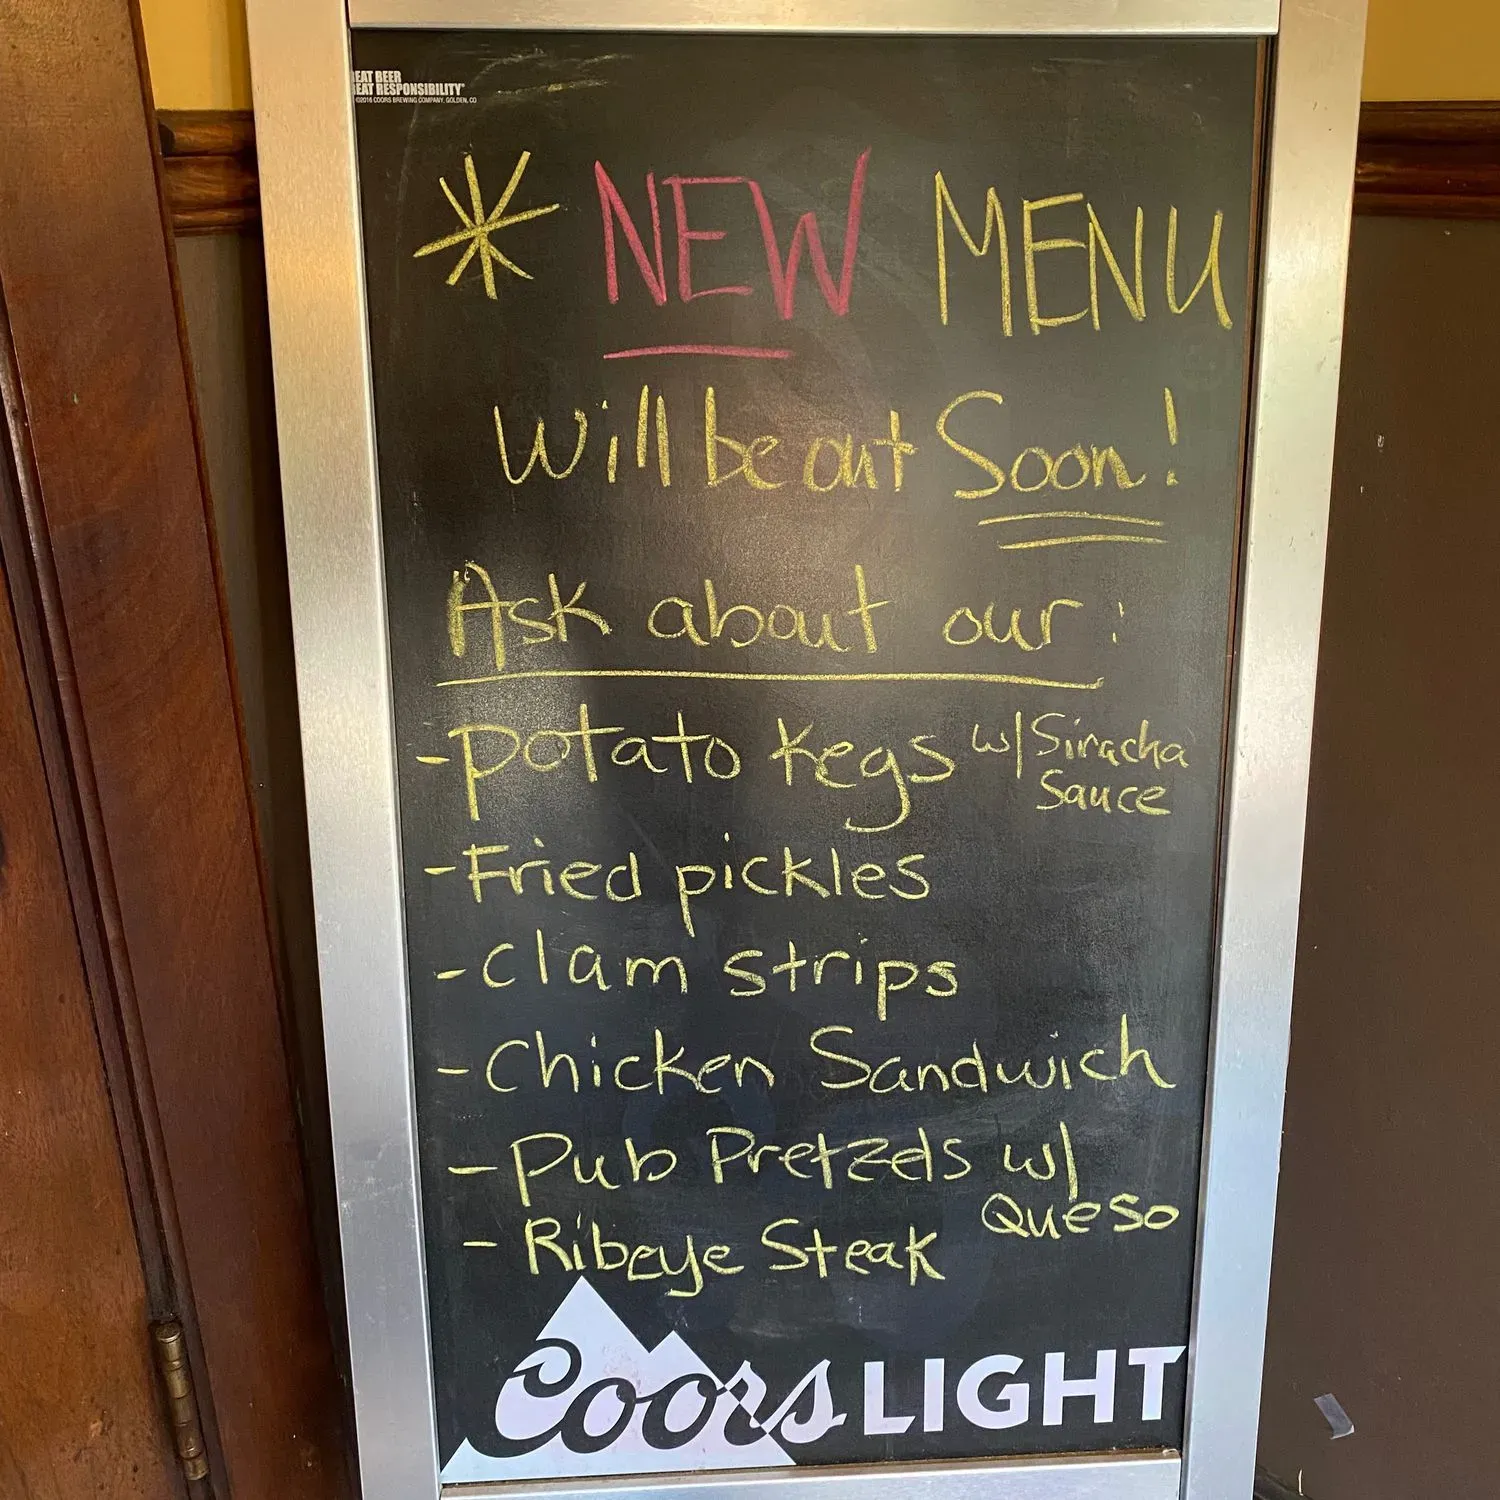 EAT BEER
EAT RESPONSIBILITY®
©2016 COORS BREWING COMPANY, GOLDEN, CO
* NEW MENU
Will be out Soon!
Ask about our:
- Potato Kegs w/ Siracha
Sauce
- Fried pickles
- Clam strips
- Chicken Sandwich
- Pub Pretzels w/
Queso
- Ribeye Steak
Coors LIGHT